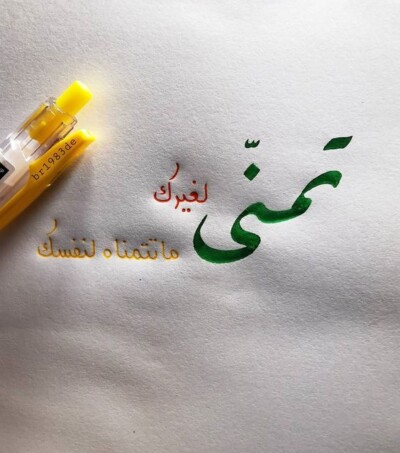 تمنّى
لغيرك
ما تتمناه لنفسك
br1983de